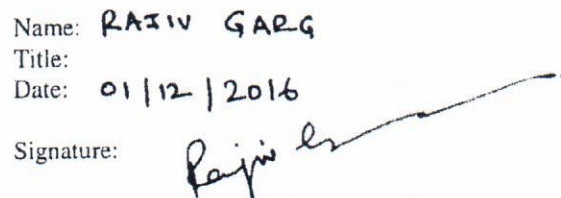 Name: RAJIV GARG
Title:
Date: 01/12/2016
Signature: Rajiv G